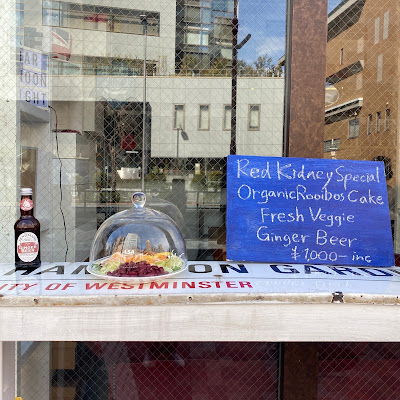 Red Kidney Special
Organic Rooibos Cake
Fresh Veggie
Ginger Beer
¥1,000- inc
GARD
TY OF WESTMINSTER